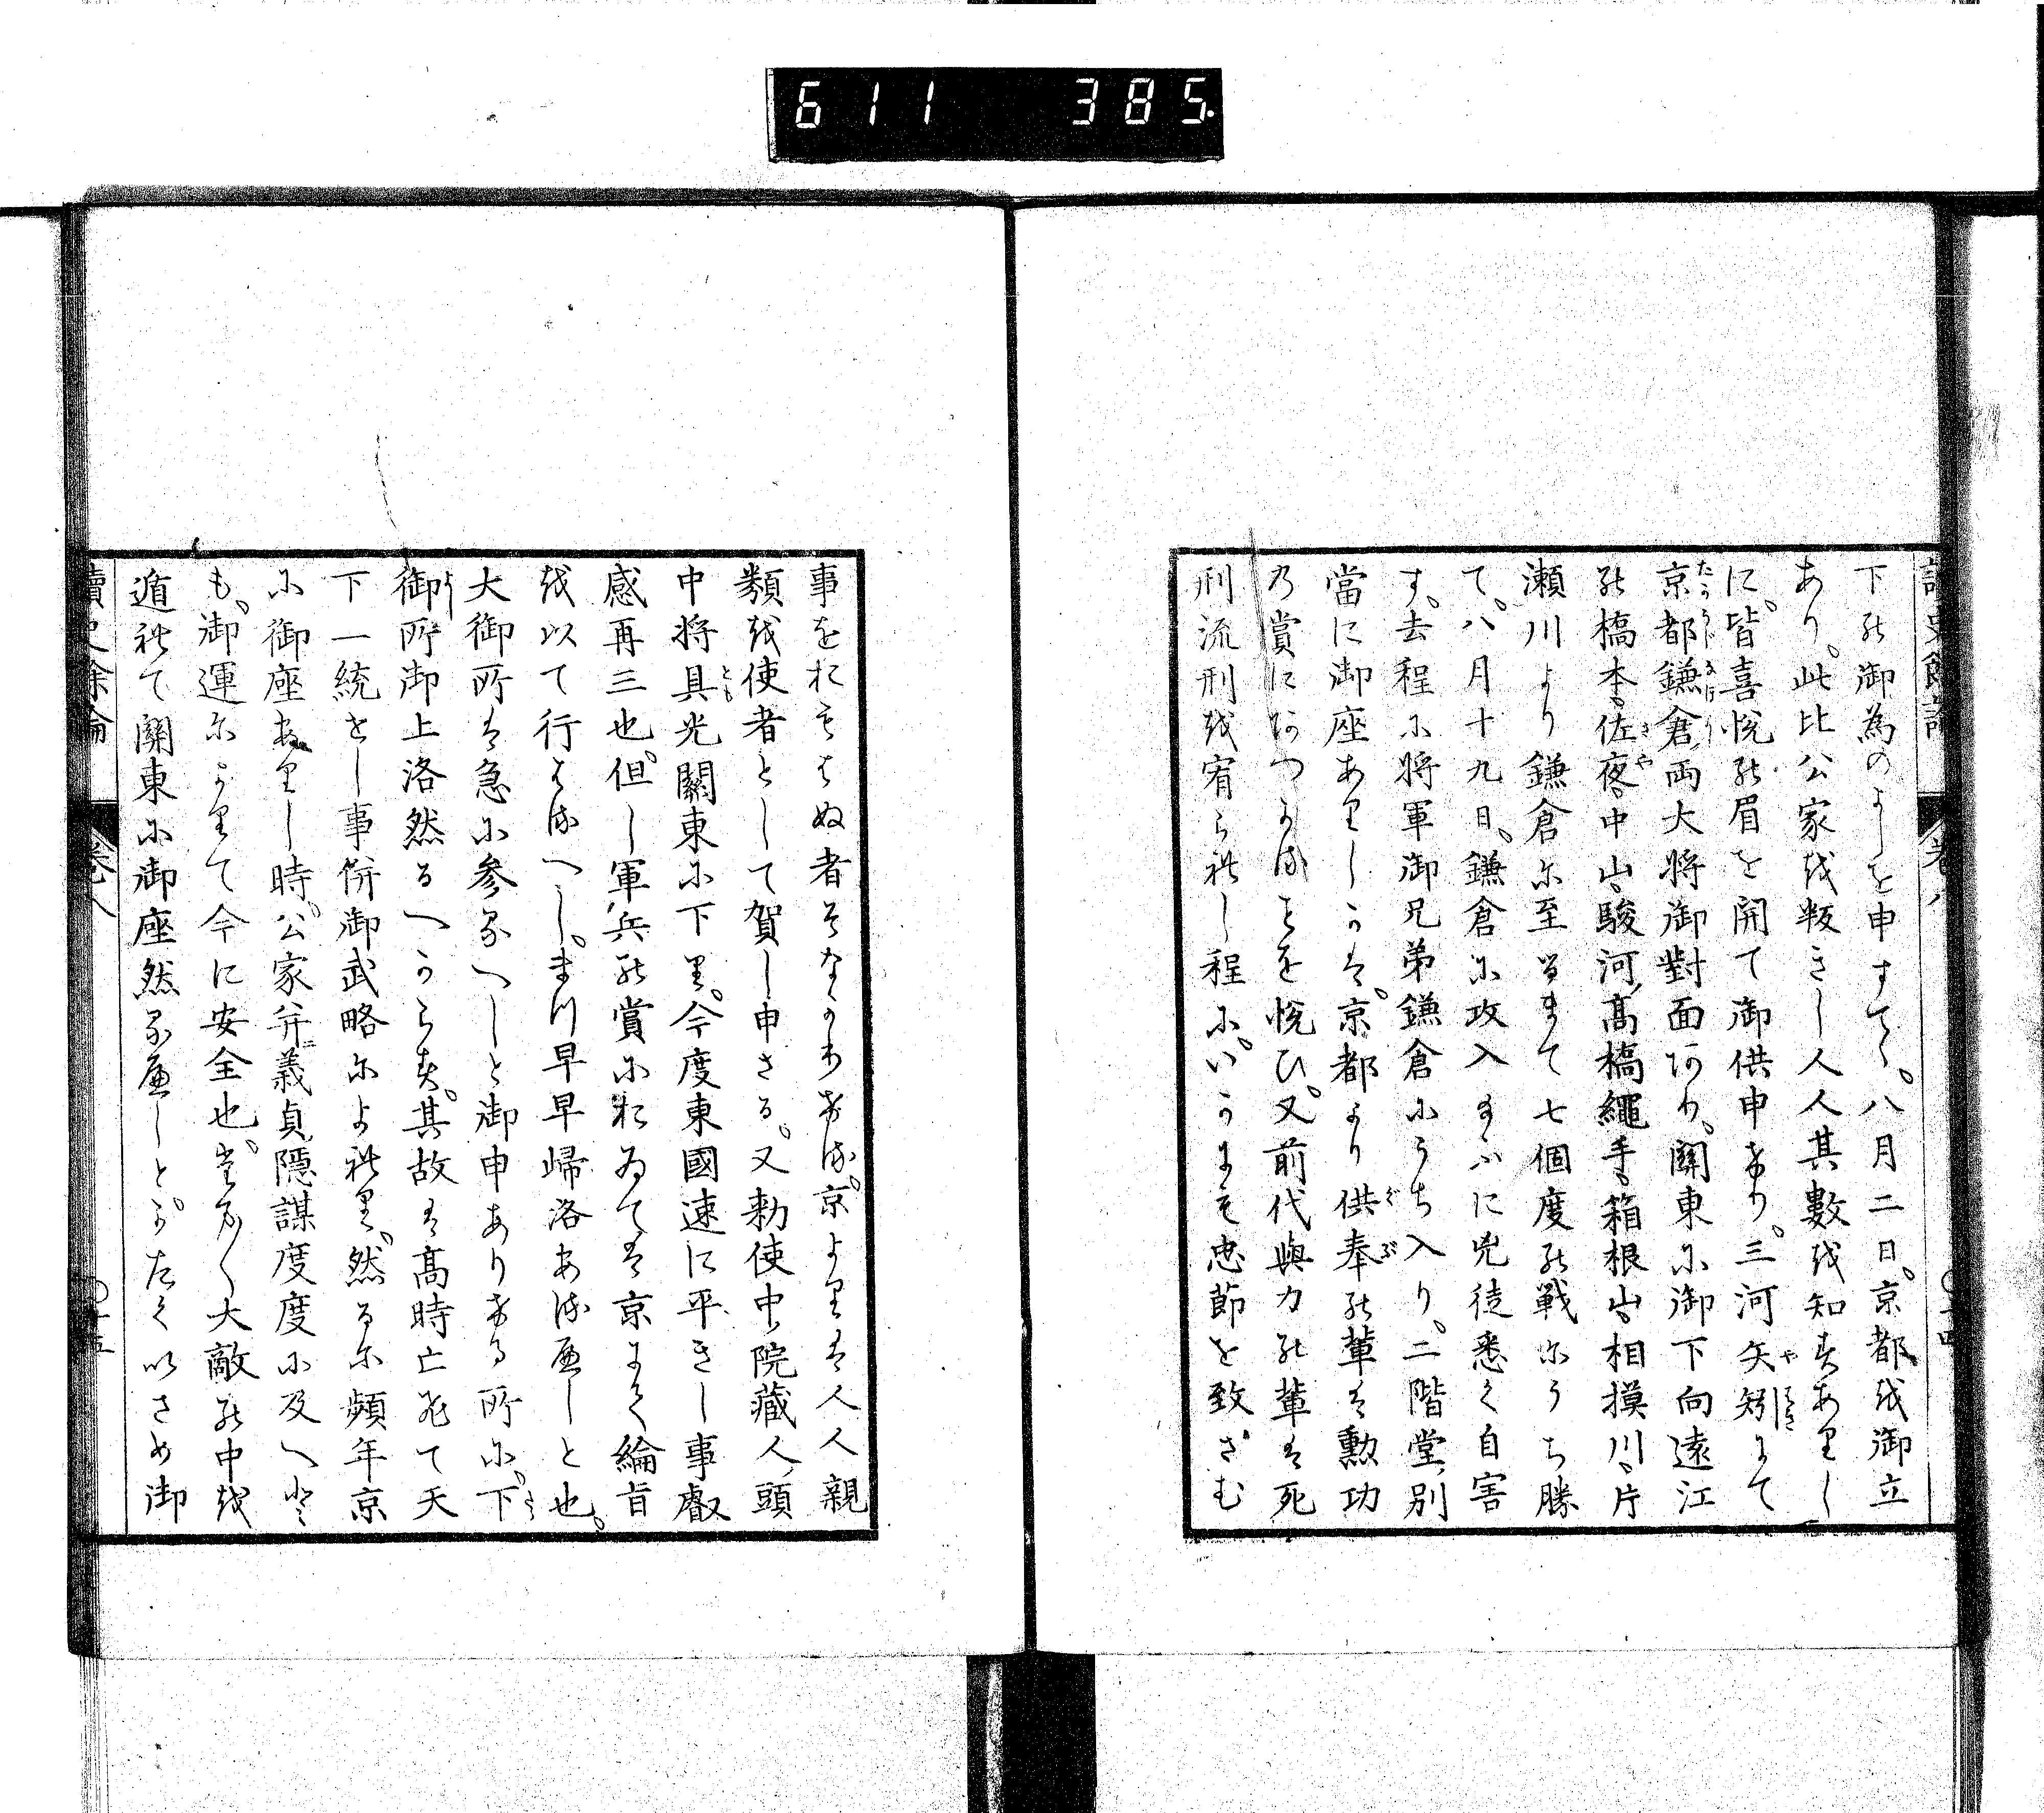 611 385.
讀史餘論 卷八 ○十四
下の御為のよしを申すてゝ。八月二日。京都を御立
あり。此比公家を叛きし人人其數を知らすありし
に。皆喜悦の眉を開て御供申けり。三河矢矧にて
京都鎌倉両大将御對面あり。關東に御下向遠江
の橋本佐夜中山駿河高橋繩手箱根山相摸川片
瀬川より鎌倉に至るまて七個度の戦にうち勝
て。八月十九日。鎌倉に攻入給ふに兇徒悉く自害
す。去程に将軍御兄弟鎌倉にうち入り。二階堂別
當に御座ありしかは。京都より供奉の輩は勲功
の賞にあつかる事を悦ひ。又前代與力の輩は死
刑流刑を宥られし程に。いかにも忠節を致さむ
事をおもはぬ者そなかりける。京よりは人人親
類を使者として賀し申さる。又勅使中院藏人頭
中将具光關東に下り。今度東國速に平きし事叡
感再三也。但し軍兵の賞におゐては京にて綸旨
を以て行はるへし。まつ早早歸洛あるへしと也。
大御所は急に参るへしと御申ありける所に。下
御所御上洛然るへからす。其故は高時亡ひて天
下一統せし事併御武略によれり。然るに頻年京
に御座ありし時。公家并義貞隠謀度度に及へと
も。御運にかりて今に安全也。たま〳〵大敵の中を
遁れて關東に御座然るへしとかたくいさめ御
讀史餘論 卷八 ○十五